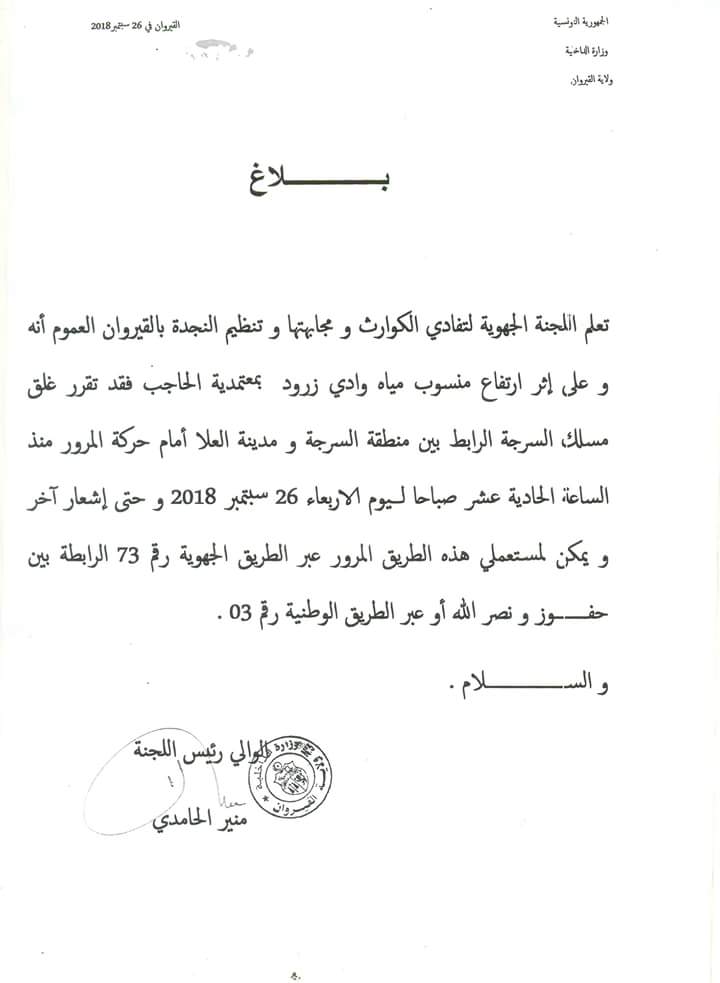 الجمهورية التونسية
وزارة الداخلية
ولاية القيروان
القيروان في 26 سبتمبر 2018
بـــــــلاغ
تعلم اللجنة الجهوية لتفادي الكوارث و مجابهتها و تنظيم النجدة بالقيروان العموم أنه
و على إثر ارتفاع منسوب مياه وادي زرود بمعتمدية الحاجب فقد تقرر غلق
مسلك السرجة الرابط بين منطقة السرجة و مدينة العلا أمام حركة المرور منذ
الساعة الحادية عشر صباحا لـيوم الاربعاء 26 سبتمبر 2018 و حتى إشعار آخر
و يمكن لمستعملي هذه الطريق المرور عبر الطريق الجهوية رقم 73 الرابطة بين
حفـــوز و نصر الله أو عبر الطريق الوطنية رقم 03 .
و الســـــــلام .
الوالي رئيس اللجنة
منير الحامدي
القيروان